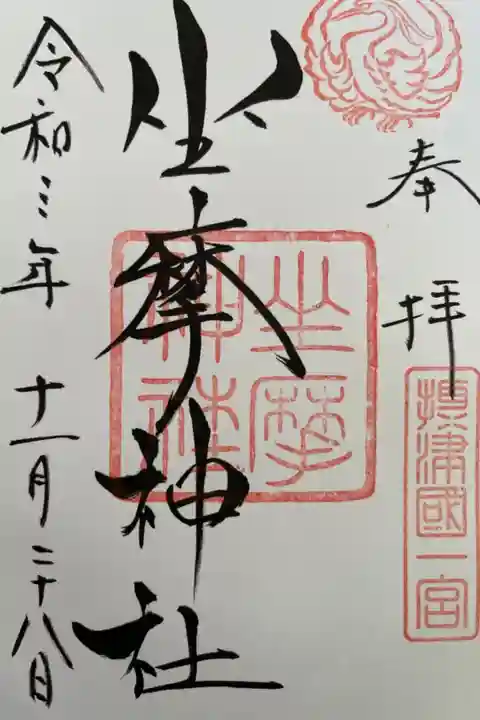 奉拝
摂津國一宮
坐摩神社
坐摩
神社
令和三年 十一月二十八日